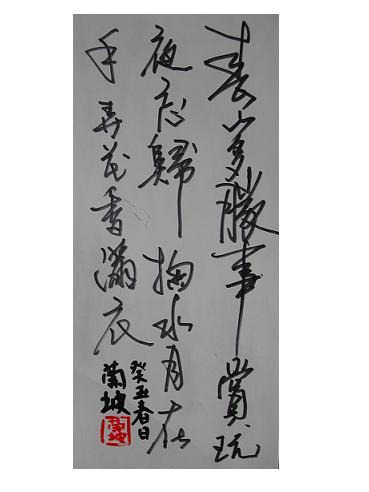 春山多勝事賞玩
夜忘歸掬水月在
手弄花香滿衣
癸丑春日
蘭坡
蘭坡